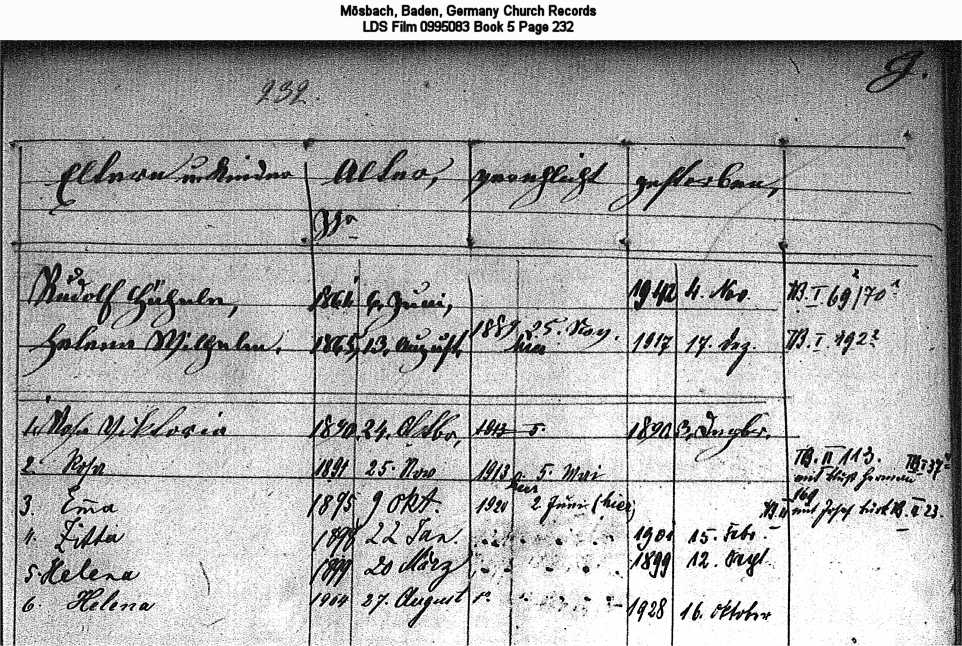 Mösbach, Baden, Germany Church Records
LDS Film 0995083 Book 5 Page 232
232.
Eltern u. Kinder Alter, verehlicht gestorben,
Rudolf 1861 6. Juni, 1942 4. Nov. I 69/70
Helena Wilhelm, 1865, 13. August, 1889 25. Nov. hier 1917 17. Dez. I 192
1. Rosa Viktoria 1890. 24. Oktbr, 1913 5. 1890 3. Dezbr.
2. Rosa 1891 25. Nov 1913 5. Mai hier II 113.
3. Emma 1895 9 Okt. 1920 2. Juni (hier) mit Josef II 23.
4. Zitta 1898 22 Jan. 1901 15. Febr.
5. Helena 1899 20 März 1899 12. Sept.
6 Helena 1904 27. August 1928 16. Oktober